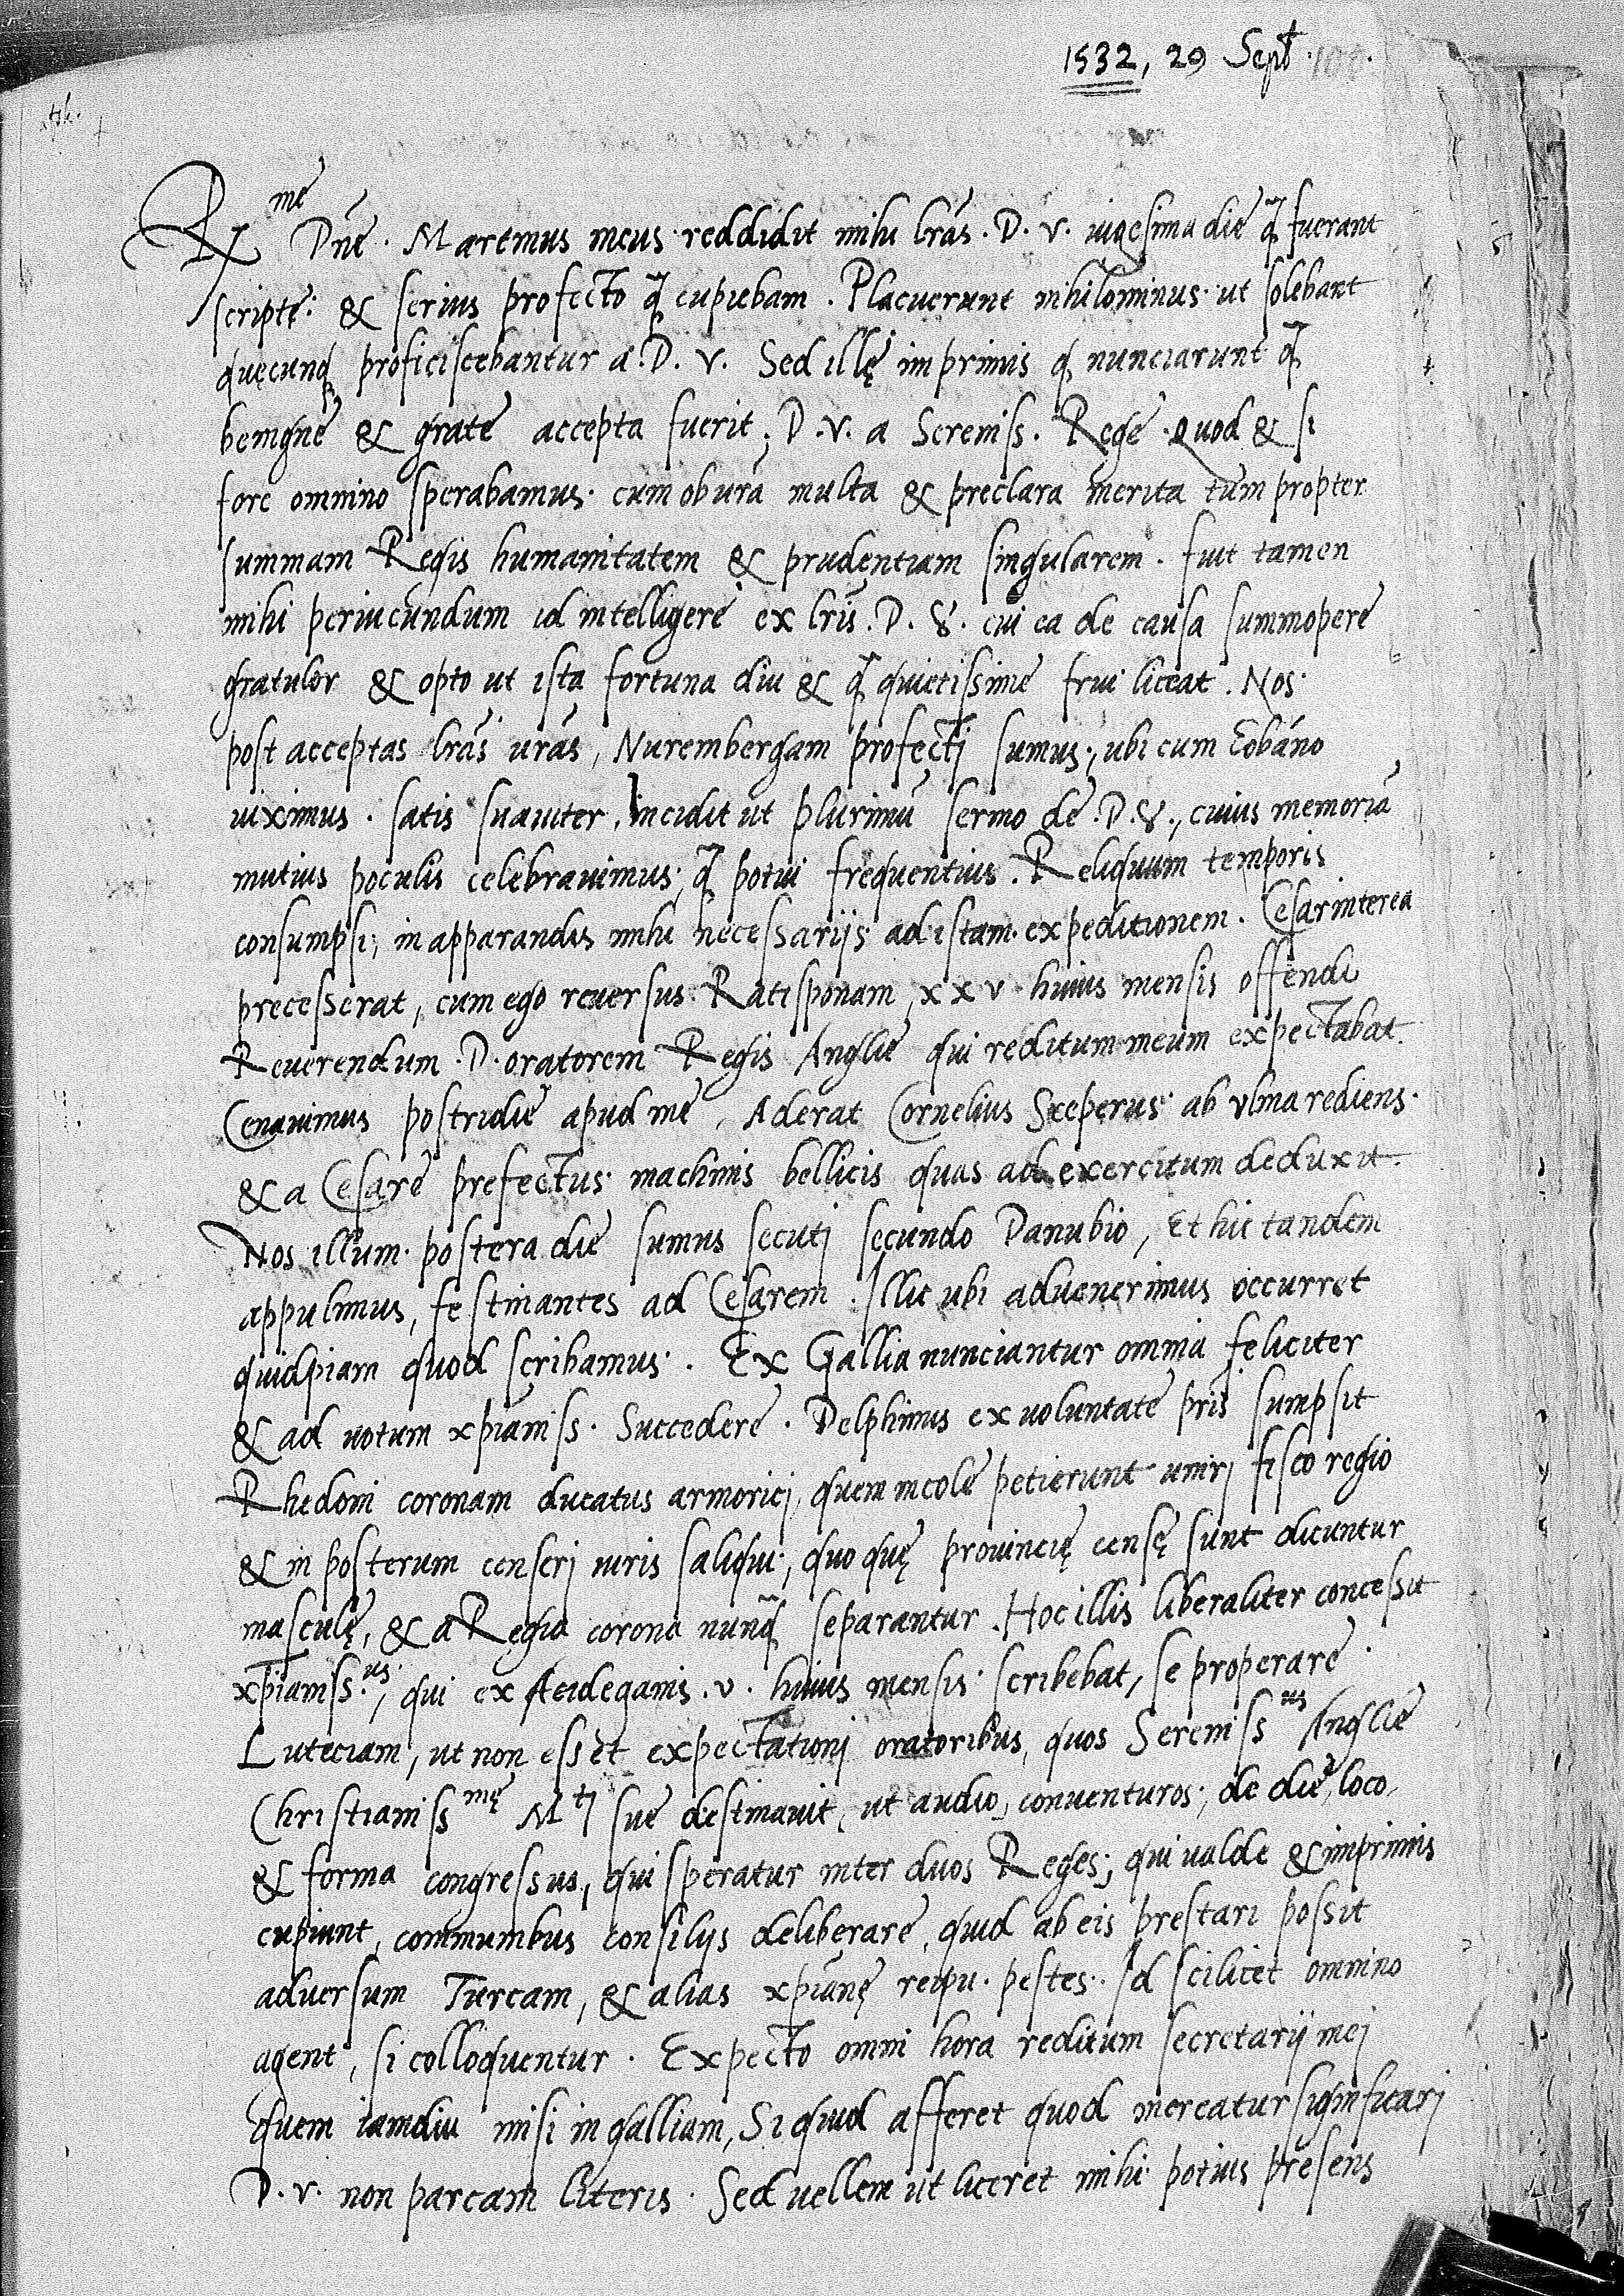 1532, 29 Sept. 101.
R.me Dn̄e. Martinus meus reddidit mihi lrās. D. V. vigesima die q̄ fuerant
scripte: & serius profecto q̄ cupiebam. Placuerunt nihilominus ut solebant
quęcunq proficiscebantur a. D. V. Sed illę imprimis q nunciarunt q̄
benigne & grate accepta fuerit, D. V. a Sereniss. Rege. Quod & si
fore omnino sperabamus. cum ob urā multa & preclara merita tum propter
summam Regis humanitatem & prudentiam singularem. fuit tamen
mihi periucundum id intelligere ex lrīs. D. V. cui ea de causa summopere
gratulor & opto ut ista fortuna diu & q̄ quietissime frui liceat. Nos
post acceptas lrās urās, Nurembergam profecti sumus, ubi cum Eobano
uiximus. satis suauiter. Incidit ut plurimū sermo de. D. V., cuius memoriā
mutuis poculis celebrauimus, q̄ potui frequentius. Reliquum temporis
consumpsi, in apparandis mihi necessariis ad istam expeditionem. Cesar interea
precesserat, cum ego reuersus Ratisponam, xxv huius mensis offendi
Reuerendum. D. oratorem Regis Anglie qui reditum meum expectabat.
Cenauimus postridie apud me, Aderat Cornelius Sceperus ab Vlma rediens.
& a Cesare prefectus machinis bellicis quas ad exercitum deduxit.
Nos illum postera die sumus secuti secundo Danubio, Et hic tandem
appulimus, festinantes ad Cesarem. Illic ubi aduenerimus occurret
quidpiam quod scribamus. Ex Gallia nunciantur omnia feliciter
& ad uotum xpīaniss. Succedere. Delphinus ex uoluntate prīs sumpsit
Rhedoni coronam ducatus armorici, quem incole petierunt uniri fisco regio
& in posterum censeri iuris saliqui, quo quę prouincię censę sunt dicuntur
masculę, & a Regia corona nunq̄ separantur. Hoc illis liberaliter concessit
xpīaniss.us, qui ex Andeganis. v. huius mensis scribebat, se properare
Luteciam, ut non esset expectationi oratoribus, quos Sereniss us Anglie
Christianiss mę M ti sue destinauit, ut audio, conuenturos, de die, loco,
& forma congressus, qui speratur inter duos Reges, qui ualde & imprimis
cupiunt, communibus consiliis deliberare, quid ab eis prestari possit
aduersum Turcam, & alias xpīanę reipu. pestes. Id scilicet omnino
agent, si colloquentur. Expecto omni hora reditum secretarii mei
quem iamdiu misi in galliam, Si quid afferet quod mereatur significari
D. V. non parcam literis. Sed uellem ut liceret mihi potius presens